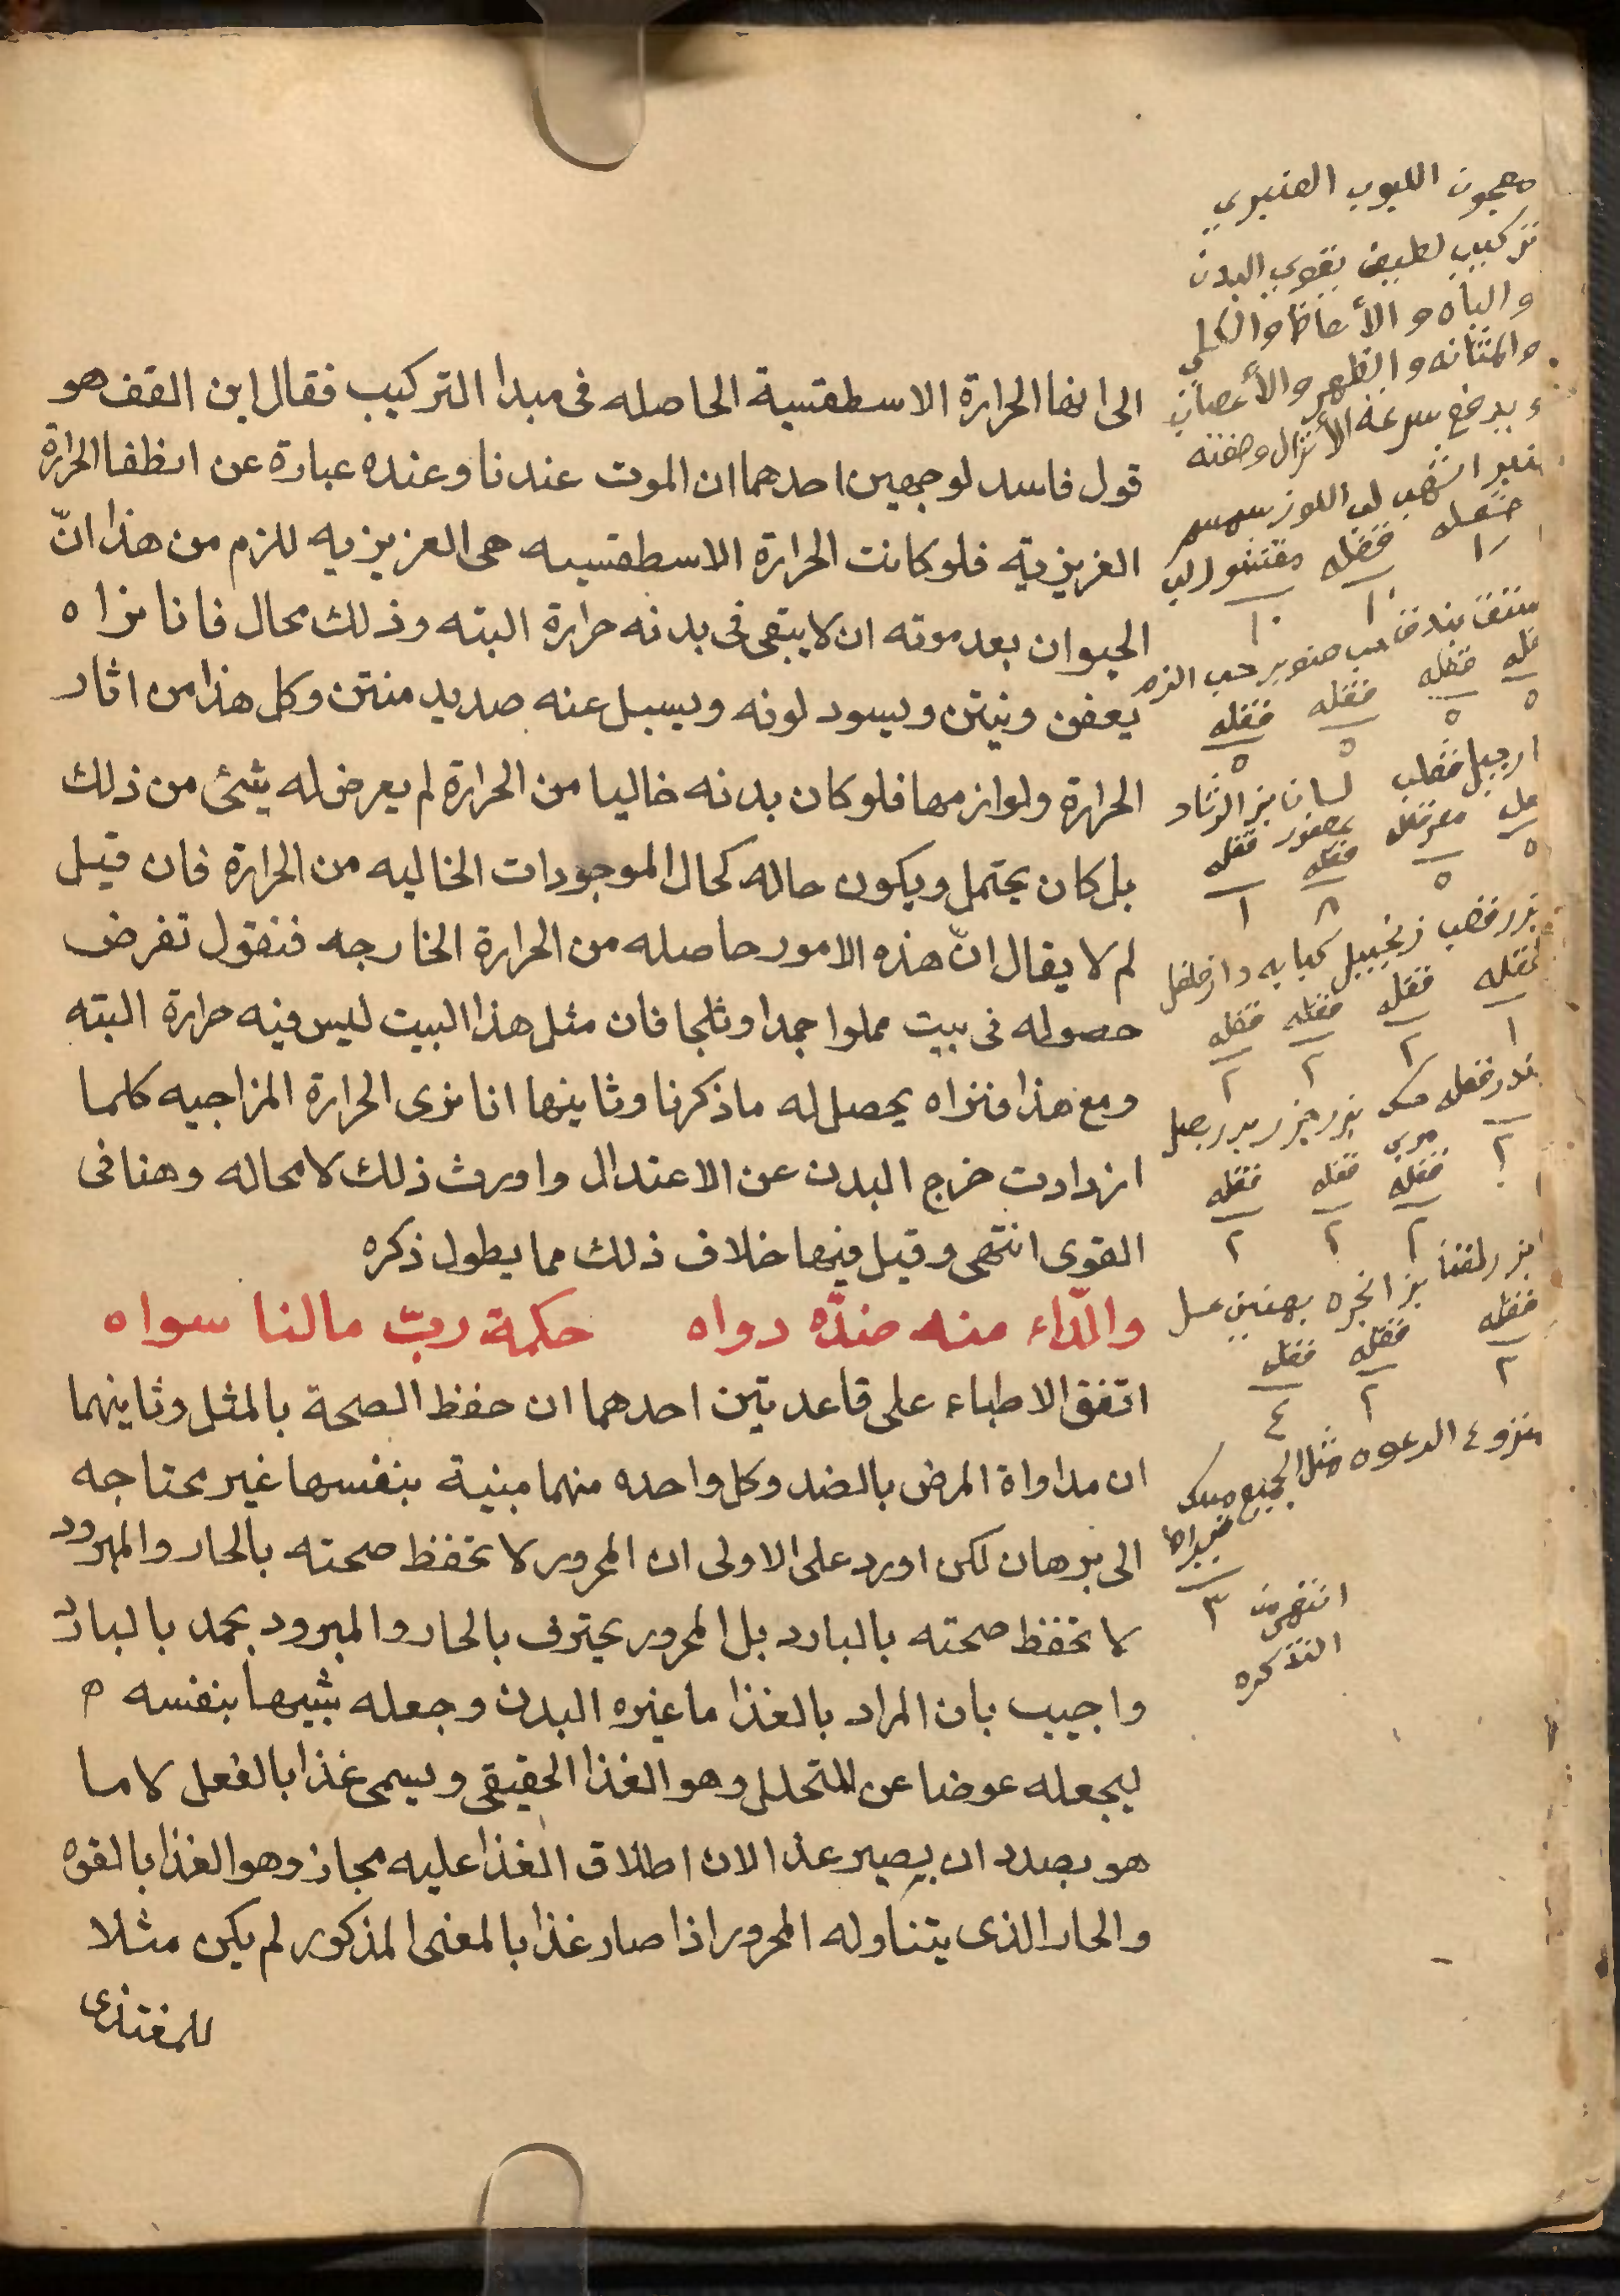 الى انها الحرارة الاسطقسية الحاصله فى مبدا التركيب فقال ابن القف هو
قول فاسد لوجهين احدهما ان الموت عندنا وعنده عبارة عن انطفا الحرارة
الغريزية فلو كانت الحرارة الاسطقسيه هى الغريزيه للزم من هذا انّ
الحيوان بعد موته ان لا يبقى فى بدنه حرارة البته وذلك محال فانا نراه
يعفن وينتن ويسود لونه ويسيل عنه صديد منتن وكل هذا من اثار
الحرارة ولوازمها فلو كان بدنه خاليا من الحرارة لم يعرض له شئ من ذلك
بل كان يحتمل ويكون حاله كحال الموجودات الخاليه من الحرارة فان قيل
لم لا يقال انّ هذه الامور حاصله من الحرارة الخارجه فنقول تفرض
حصوله فى بيت مملوا جمدا وثلجا فان مثل هذا البيت ليس فيه حرارة البته
ومع هذا فنراه يحصل له ما ذكرنا وثانيها انا نرى الحرارة المزاجيه كلما
ازدادت خرج البدن عن الاعتدال واورث ذلك لا محاله وهنا فى
القوى انتهى وقيل فيها خلاف ذلك مما يطول ذكره
والدّاء منه ضدّه دواه حكمة ربّ مالنا سواه
اتفق الاطباء على قاعدتين احدهما ان حفظ الصحة بالمثل وثانيهما
ان مداواة المرض بالضد وكل واحده منهما مبنية بنفسها غير محتاجه
الى برهان لكن اورد على الاولى ان المحرور لا تحفظ صحته بالحار والمبرود
لا تحفظ صحته بالبارد بل المحرور يحترف بالحار والمبرود يجمد بالبارد
واجيب بان المراد بالغذا ما غيره البدن وجعله شبيها بنفسه
ليجعله عوضا عن المتحلل وهو الغذا الحقيقى ويسمى غذا بالفعل لا ما
هو بصدد ان يصير غذا لان اطلاق الغذا عليه مجاز وهو الغذا بالقوه
والحار الذى يتناوله المحرور اذا صار غذا بالمعنى المذكور لم يكن مثلا
للمغتذى
معجون اللبوب العنبري
تركيب لطيف يقوي البدن
والباه والأنعاظ والكلى
والمثانه والظهر والأعصاب
ويدفع سرعة الأنزال وصفته
اشهب لب اللوز سمسم
مقشور لب
١٠ ١٠
بندق حب صنوبر حب
٥ ٥ ٥ ٥
لسان بزر الرشاد
عصفور
٥ ٥ ٨ ١
زنجبيل كبابه دارفلفل
١ ٢ ٢ ٢
بزر جزر بزر بصل
٢ ٢ ٢ ٢
بزر انجره بهمنين عسل
٢ ٢ ٤
منزوع الرغوه مثل الجميع مسك
قيراط
٣
انتهى من
التذكره